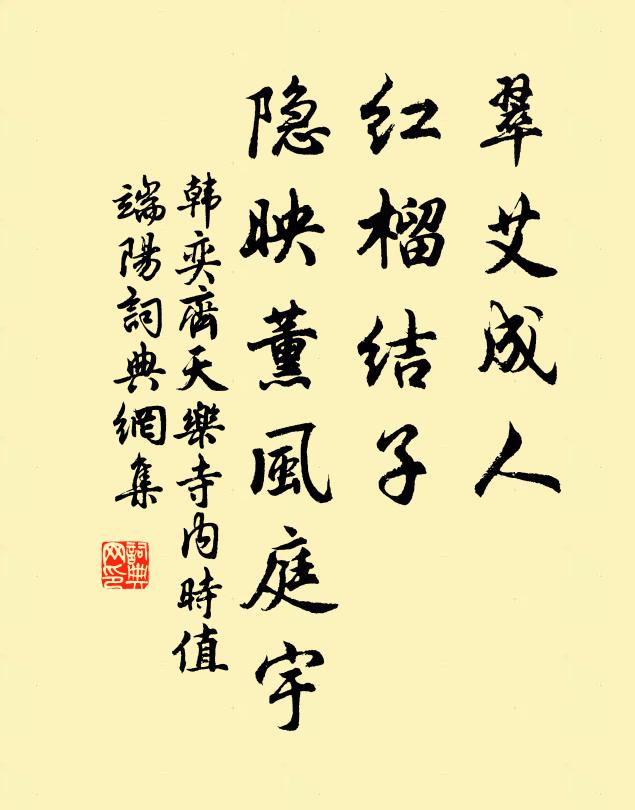 翠艾成人
红榴结子
隐映薰風庭宇
韩奕齊天樂寺内時值
端陽詞典網集
詞典网印